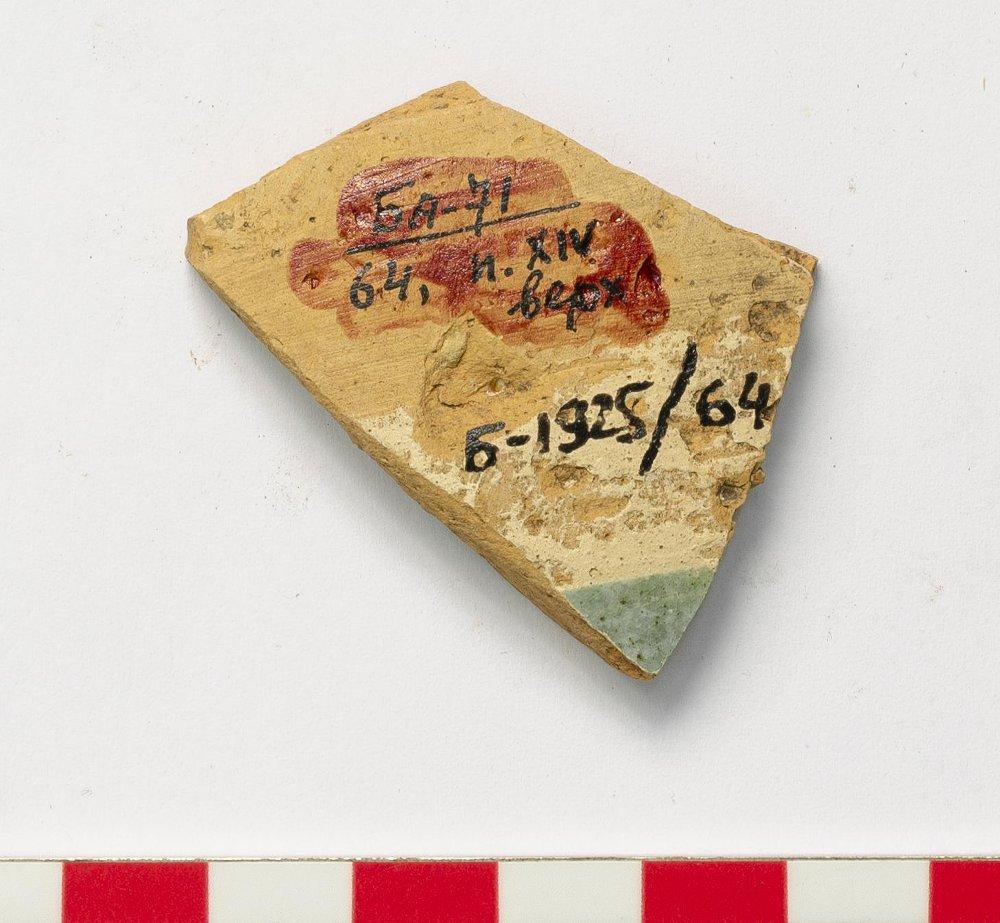 Бл-71
64, п. XIV
верх
Б-1925/64